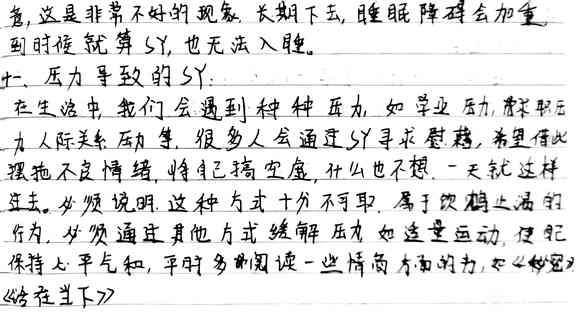 惫,这是非常不好的现象.长期下去,睡眠障碍会加重
到时候就算SY,也无法入睡。
十一、压力导致的SY.
在生活中,我们会遇到种种压力,如学业压力,求职压
力人际关系压力等,很多人会通过SY寻求慰藉,希望借此
摆拖不良情绪,将自己搞空虚,什么也不想,一天就这样
过去。必须说明.这种方式十分不可取.属于饮鸩止渴的
行为,必须通过其他方式缓解压力,如适量运动,使自己
保持心平气和,平时多阅读一些情商方面的书,如《秘密》
《活在当下》